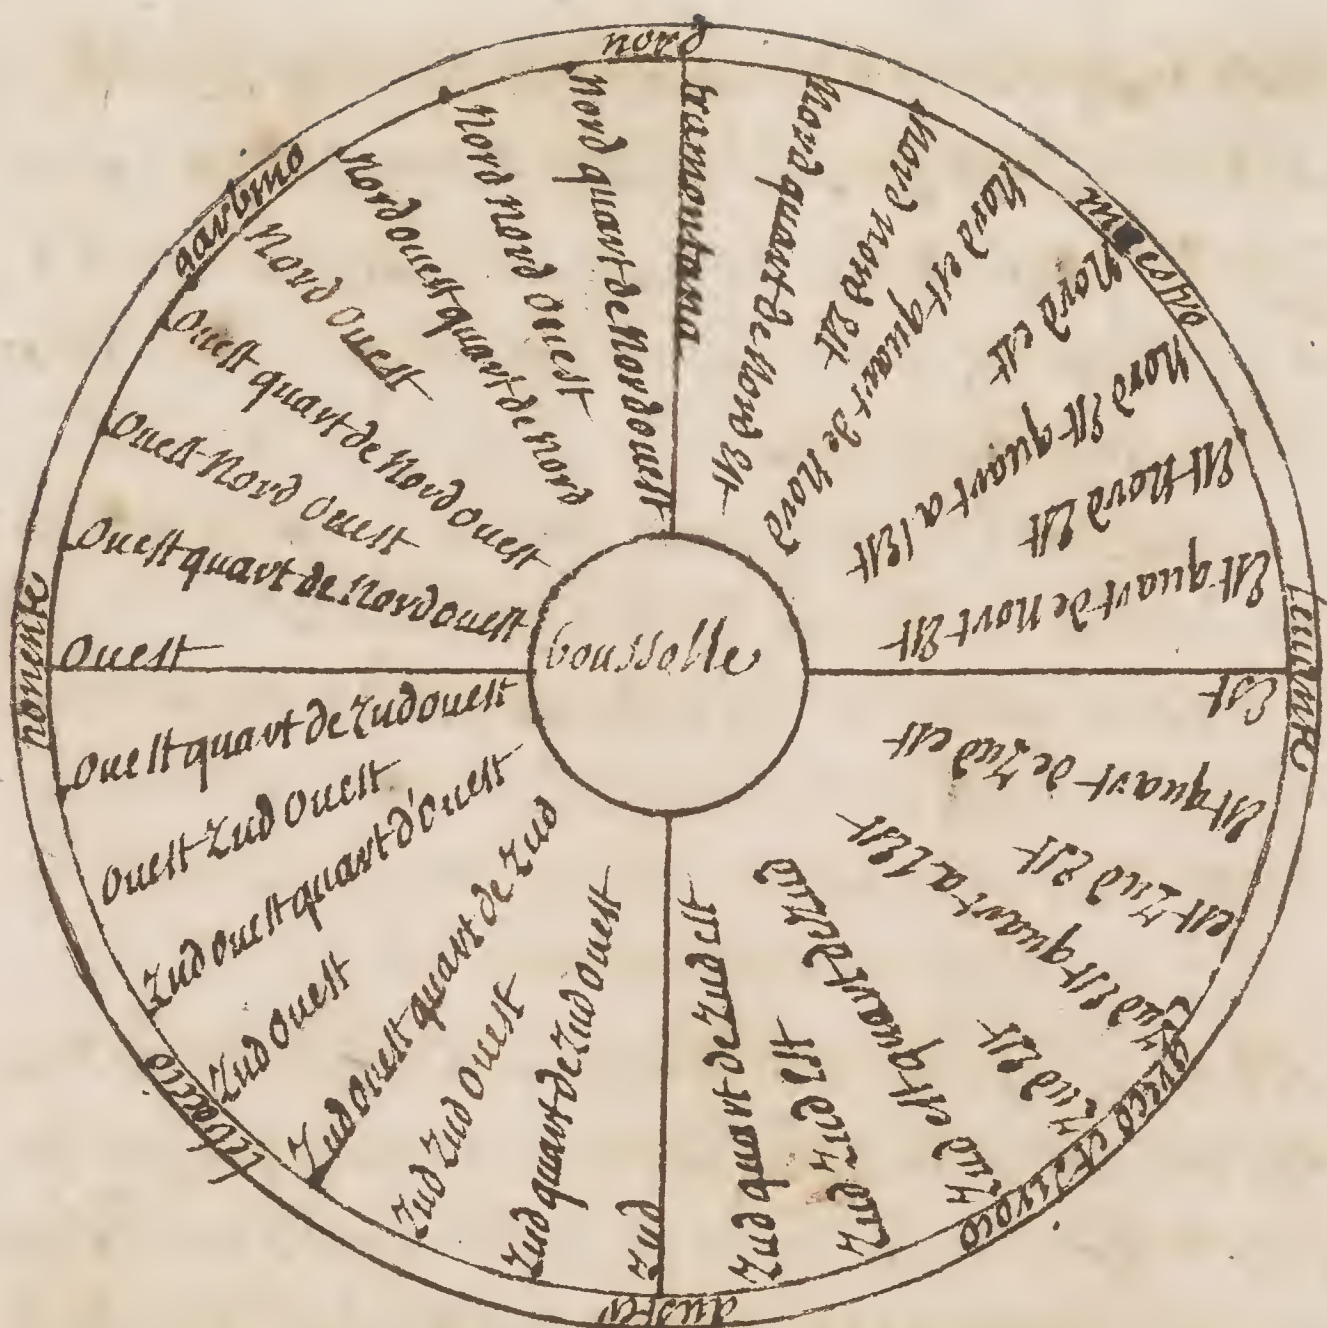 nord
tramontana
Nord quart de Nord Est
Nord nord Est
Nord est quart de Nord
Nord est
Nord Est quart a l'Est
Est Nord Est
Est quart de Nort Est
Est
est quart de Zud est
est Zud Est
Zud Est quart a l'Est
Zud Est
Zud est quart de Zud
Zud Zud Est
Zud quart de Zud est
Zud
Zud quart de Zud Ouest
Zud Zud Ouest
Zud Ouest quart de Zud
Zud Ouest
Zud Ouest quart d'Ouest
Ouest Zud Ouest
Ouest quart de Zud ouest
Ouest
Ouest quart de Nord ouest
Ouest Nord Ouest
Ouest quart de Nord ouest
Nord Ouest
Nord ouest quart de Nord
Nord Nord Ouest
Nord quart de Nord ouest
greco et
auster
ponente
garbino
boussolle